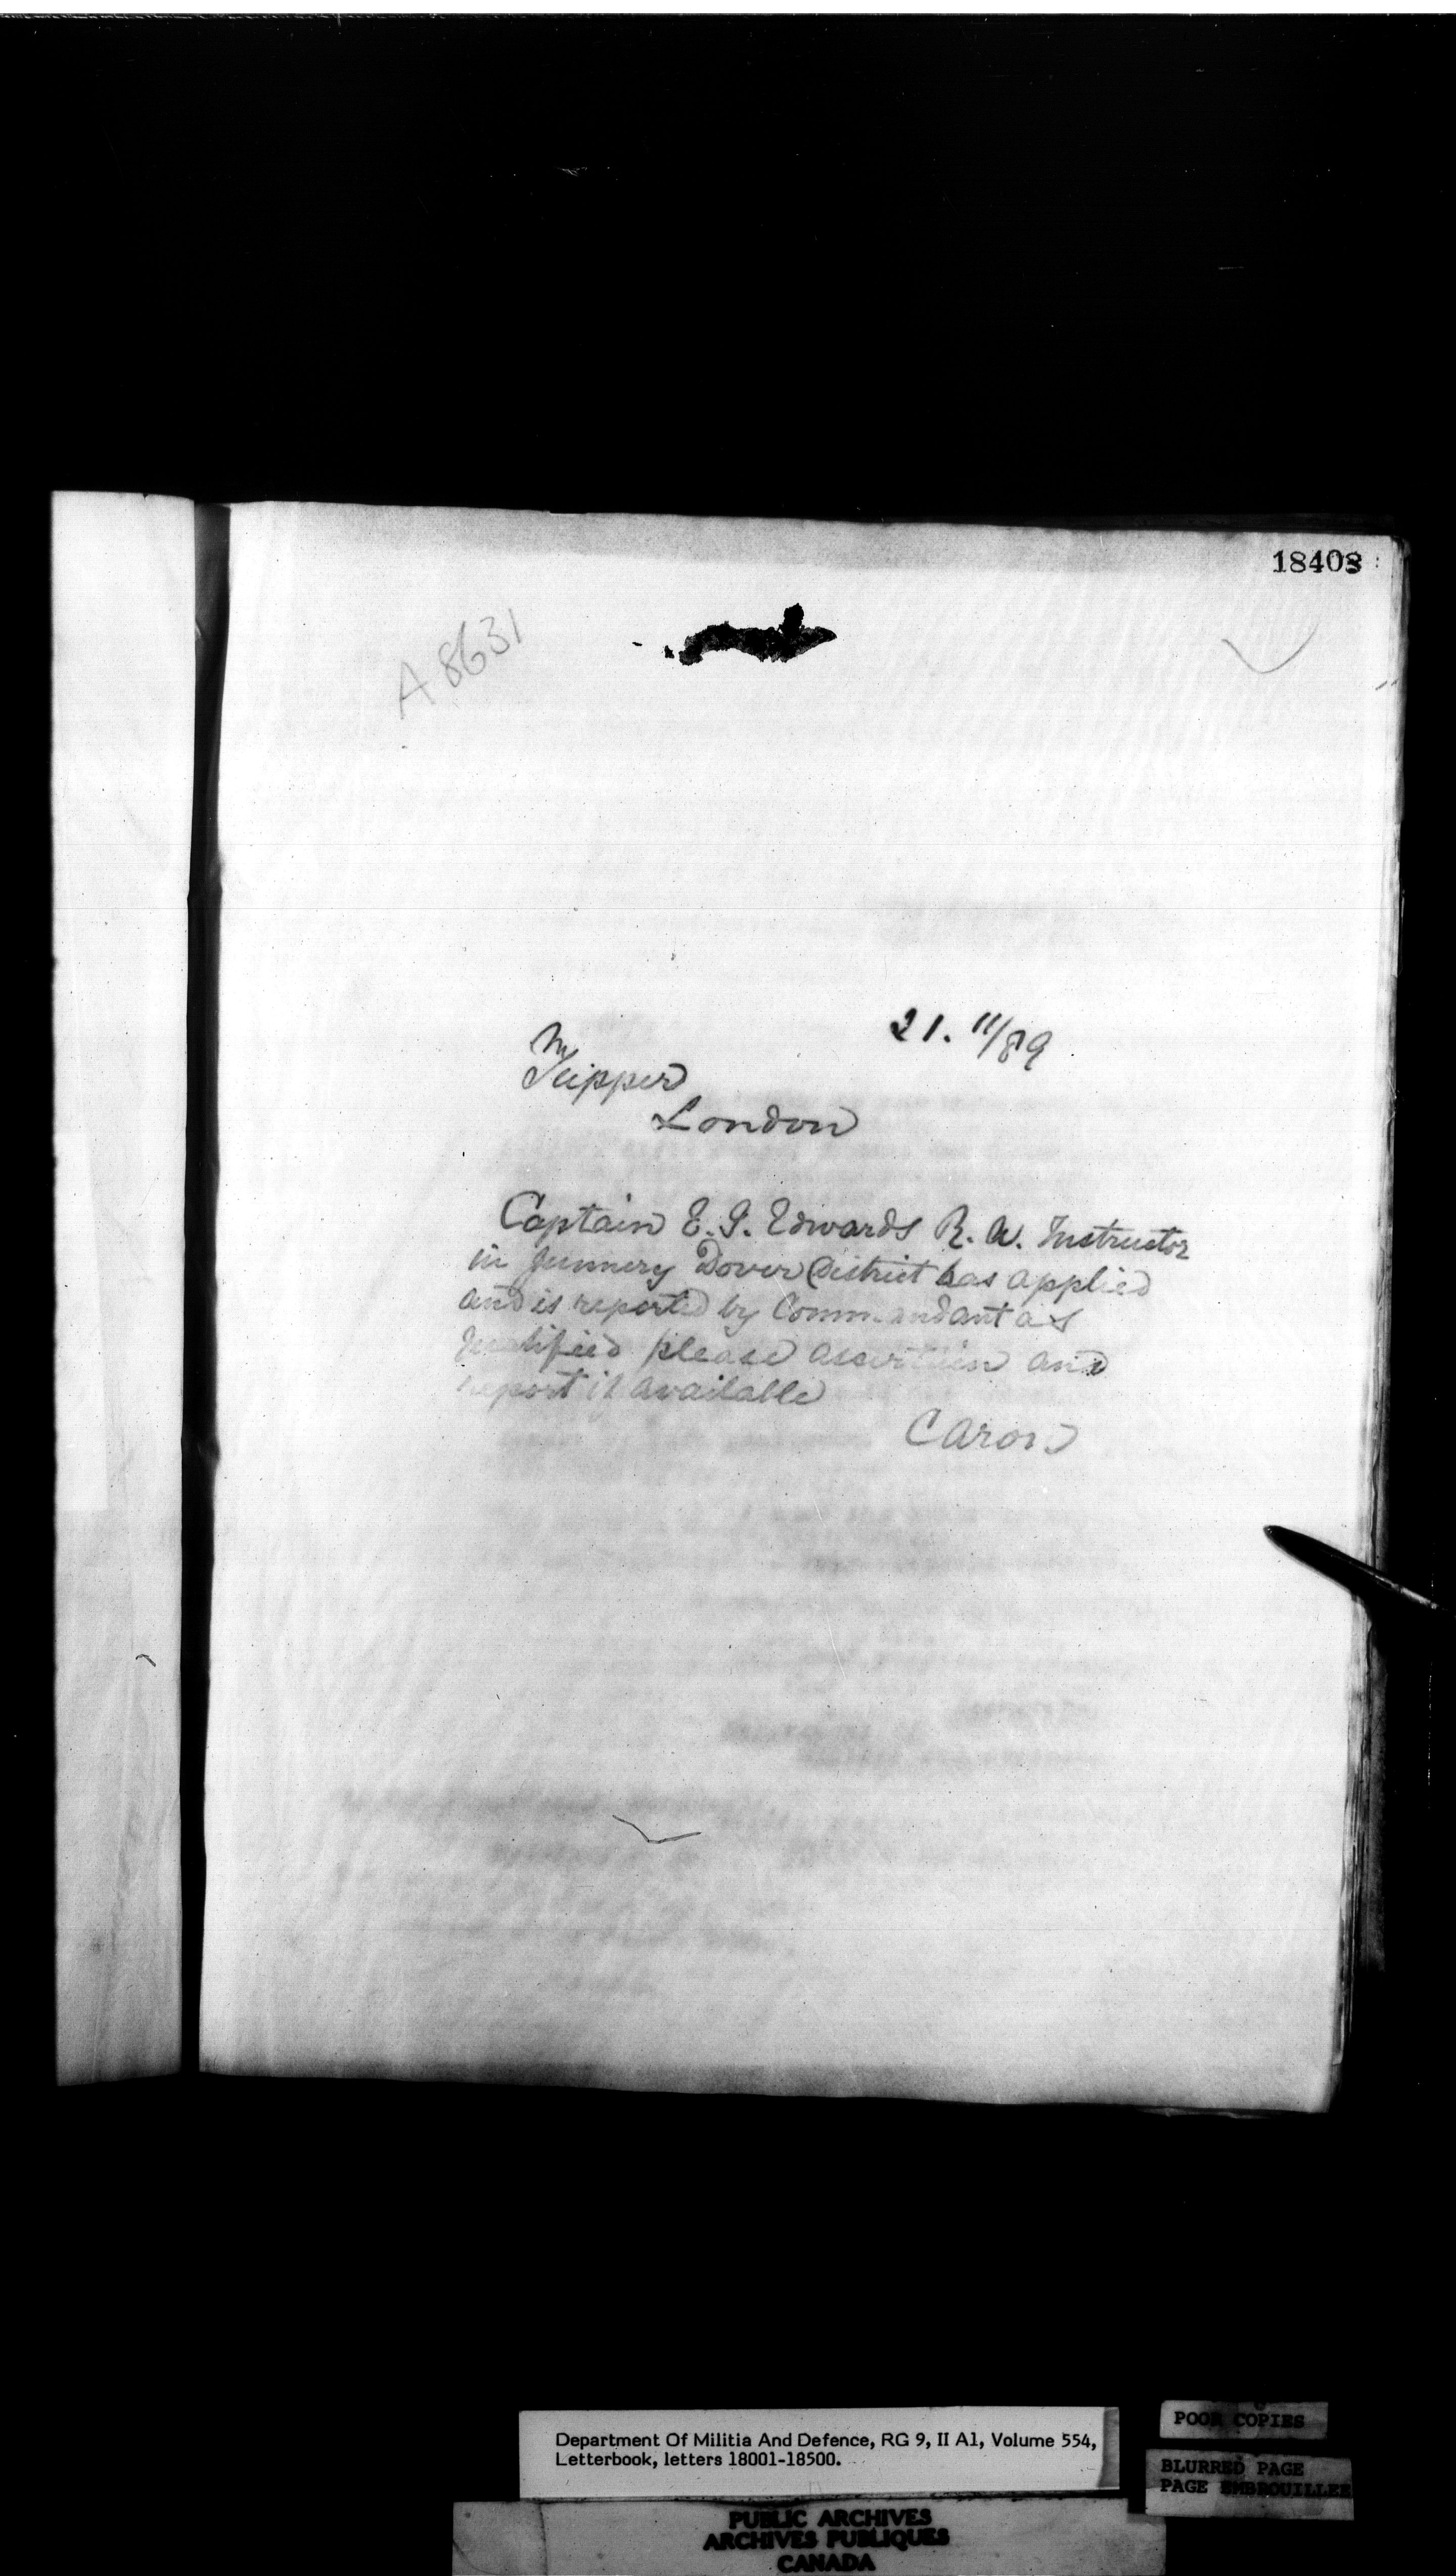 18408
A 8631
21. 11/89
Tupper
London
Captain E. G. Edwards R. A. Instructor
in Gunnery Dover District has applied
and is reported by Commandant as
qualified please ascertain and
report if available
Caron
Department Of Militia And Defence, RG 9, II A1, Volume 554,
Letterbook, letters 18001-18500.
POOR COPIES
BLURRED PAGE
PAGE EMBROUILLEE
PUBLIC ARCHIVES
ARCHIVES PUBLIQUES
CANADA